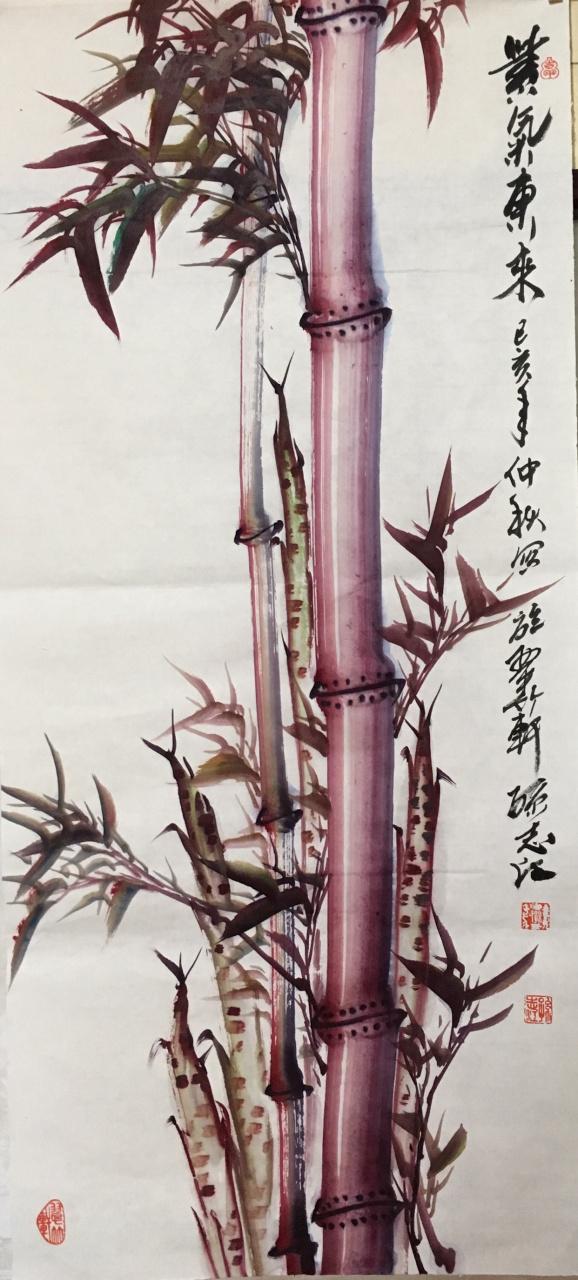 紫氣東來 己亥年仲秋寫於翠竹軒 志江